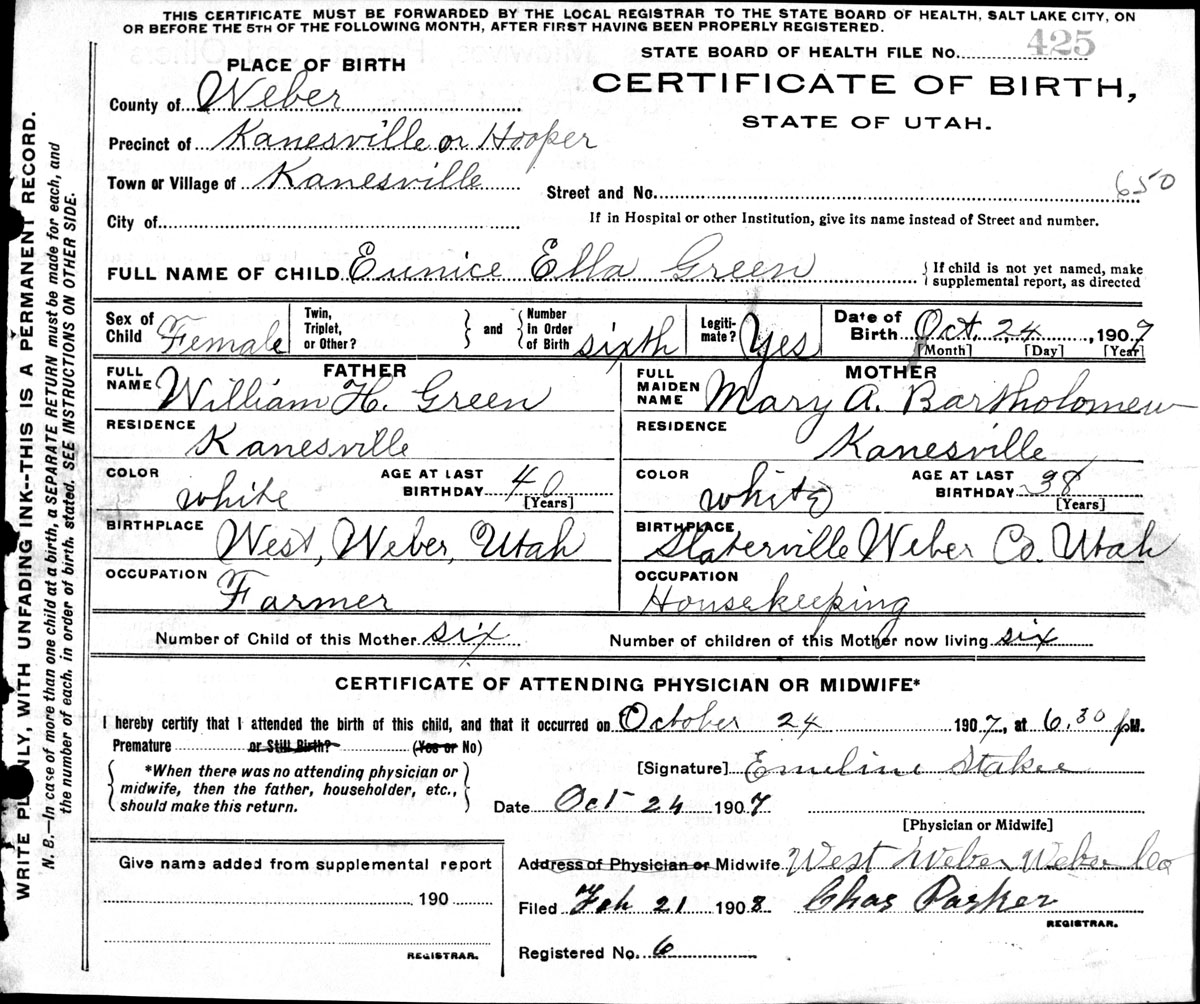 THIS CERTIFICATE MUST BE FORWARDED BY THE LOCAL REGISTRAR TO THE STATE BOARD OF HEALTH, SALT LAKE CITY, ON
OR BEFORE THE 5TH OF THE FOLLOWING MONTH, AFTER FIRST HAVING BEEN PROPERLY REGISTERED.
STATE BOARD OF HEALTH FILE No. 425
PLACE OF BIRTH
CERTIFICATE OF BIRTH,
STATE OF UTAH.
County of Weber
Precinct of Kanesville or Hooper
Town or Village of Kanesville
Street and No. 650
City of
If in Hospital or other Institution, give its name instead of Street and number.
FULL NAME OF CHILD Eunice Ella Green
{ If child is not yet named, make
supplemental report, as directed
Sex of Child Female
Twin, Triplet, or Other? } and { Number in Order of Birth sixth
Legiti-mate? Yes
Date of Birth Oct. 24, 1907
[Month] [Day] [Year]
FATHER
FULL NAME William H. Green
RESIDENCE
Kanesville
COLOR white
AGE AT LAST BIRTHDAY 40
[Years]
BIRTHPLACE West, Weber, Utah
OCCUPATION Farmer
MOTHER
FULL MAIDEN NAME Mary A. Bartholomew
RESIDENCE
Kanesville
COLOR white
AGE AT LAST BIRTHDAY 38
[Years]
BIRTHPLACE
Slaterville Weber Co. Utah
OCCUPATION
Housekeeping
Number of Child of this Mother six
Number of children of this Mother now living six
CERTIFICATE OF ATTENDING PHYSICIAN OR MIDWIFE*
I hereby certify that I attended the birth of this child, and that it occurred on October 24 1907, at 6.30 P.M.
Premature or Still Birth? (Yes or No)
{ *When there was no attending physician or
midwife, then the father, householder, etc.,
should make this return. }
[Signature] Emeline Staker
Date Oct 24 1907
[Physician or Midwife]
Give name added from supplemental report
190
REGISTRAR.
Address of Physician or Midwife West Weber Weber Co
Filed Feb 21 1908 Chas Parker
REGISTRAR.
Registered No. 6
WRITE PLAINLY, WITH UNFADING INK--THIS IS A PERMANENT RECORD.
N. B.—In case of more than one child at a birth, a SEPARATE RETURN must be made for each, and
the number of each, in order of birth, stated. SEE INSTRUCTIONS ON OTHER SIDE.